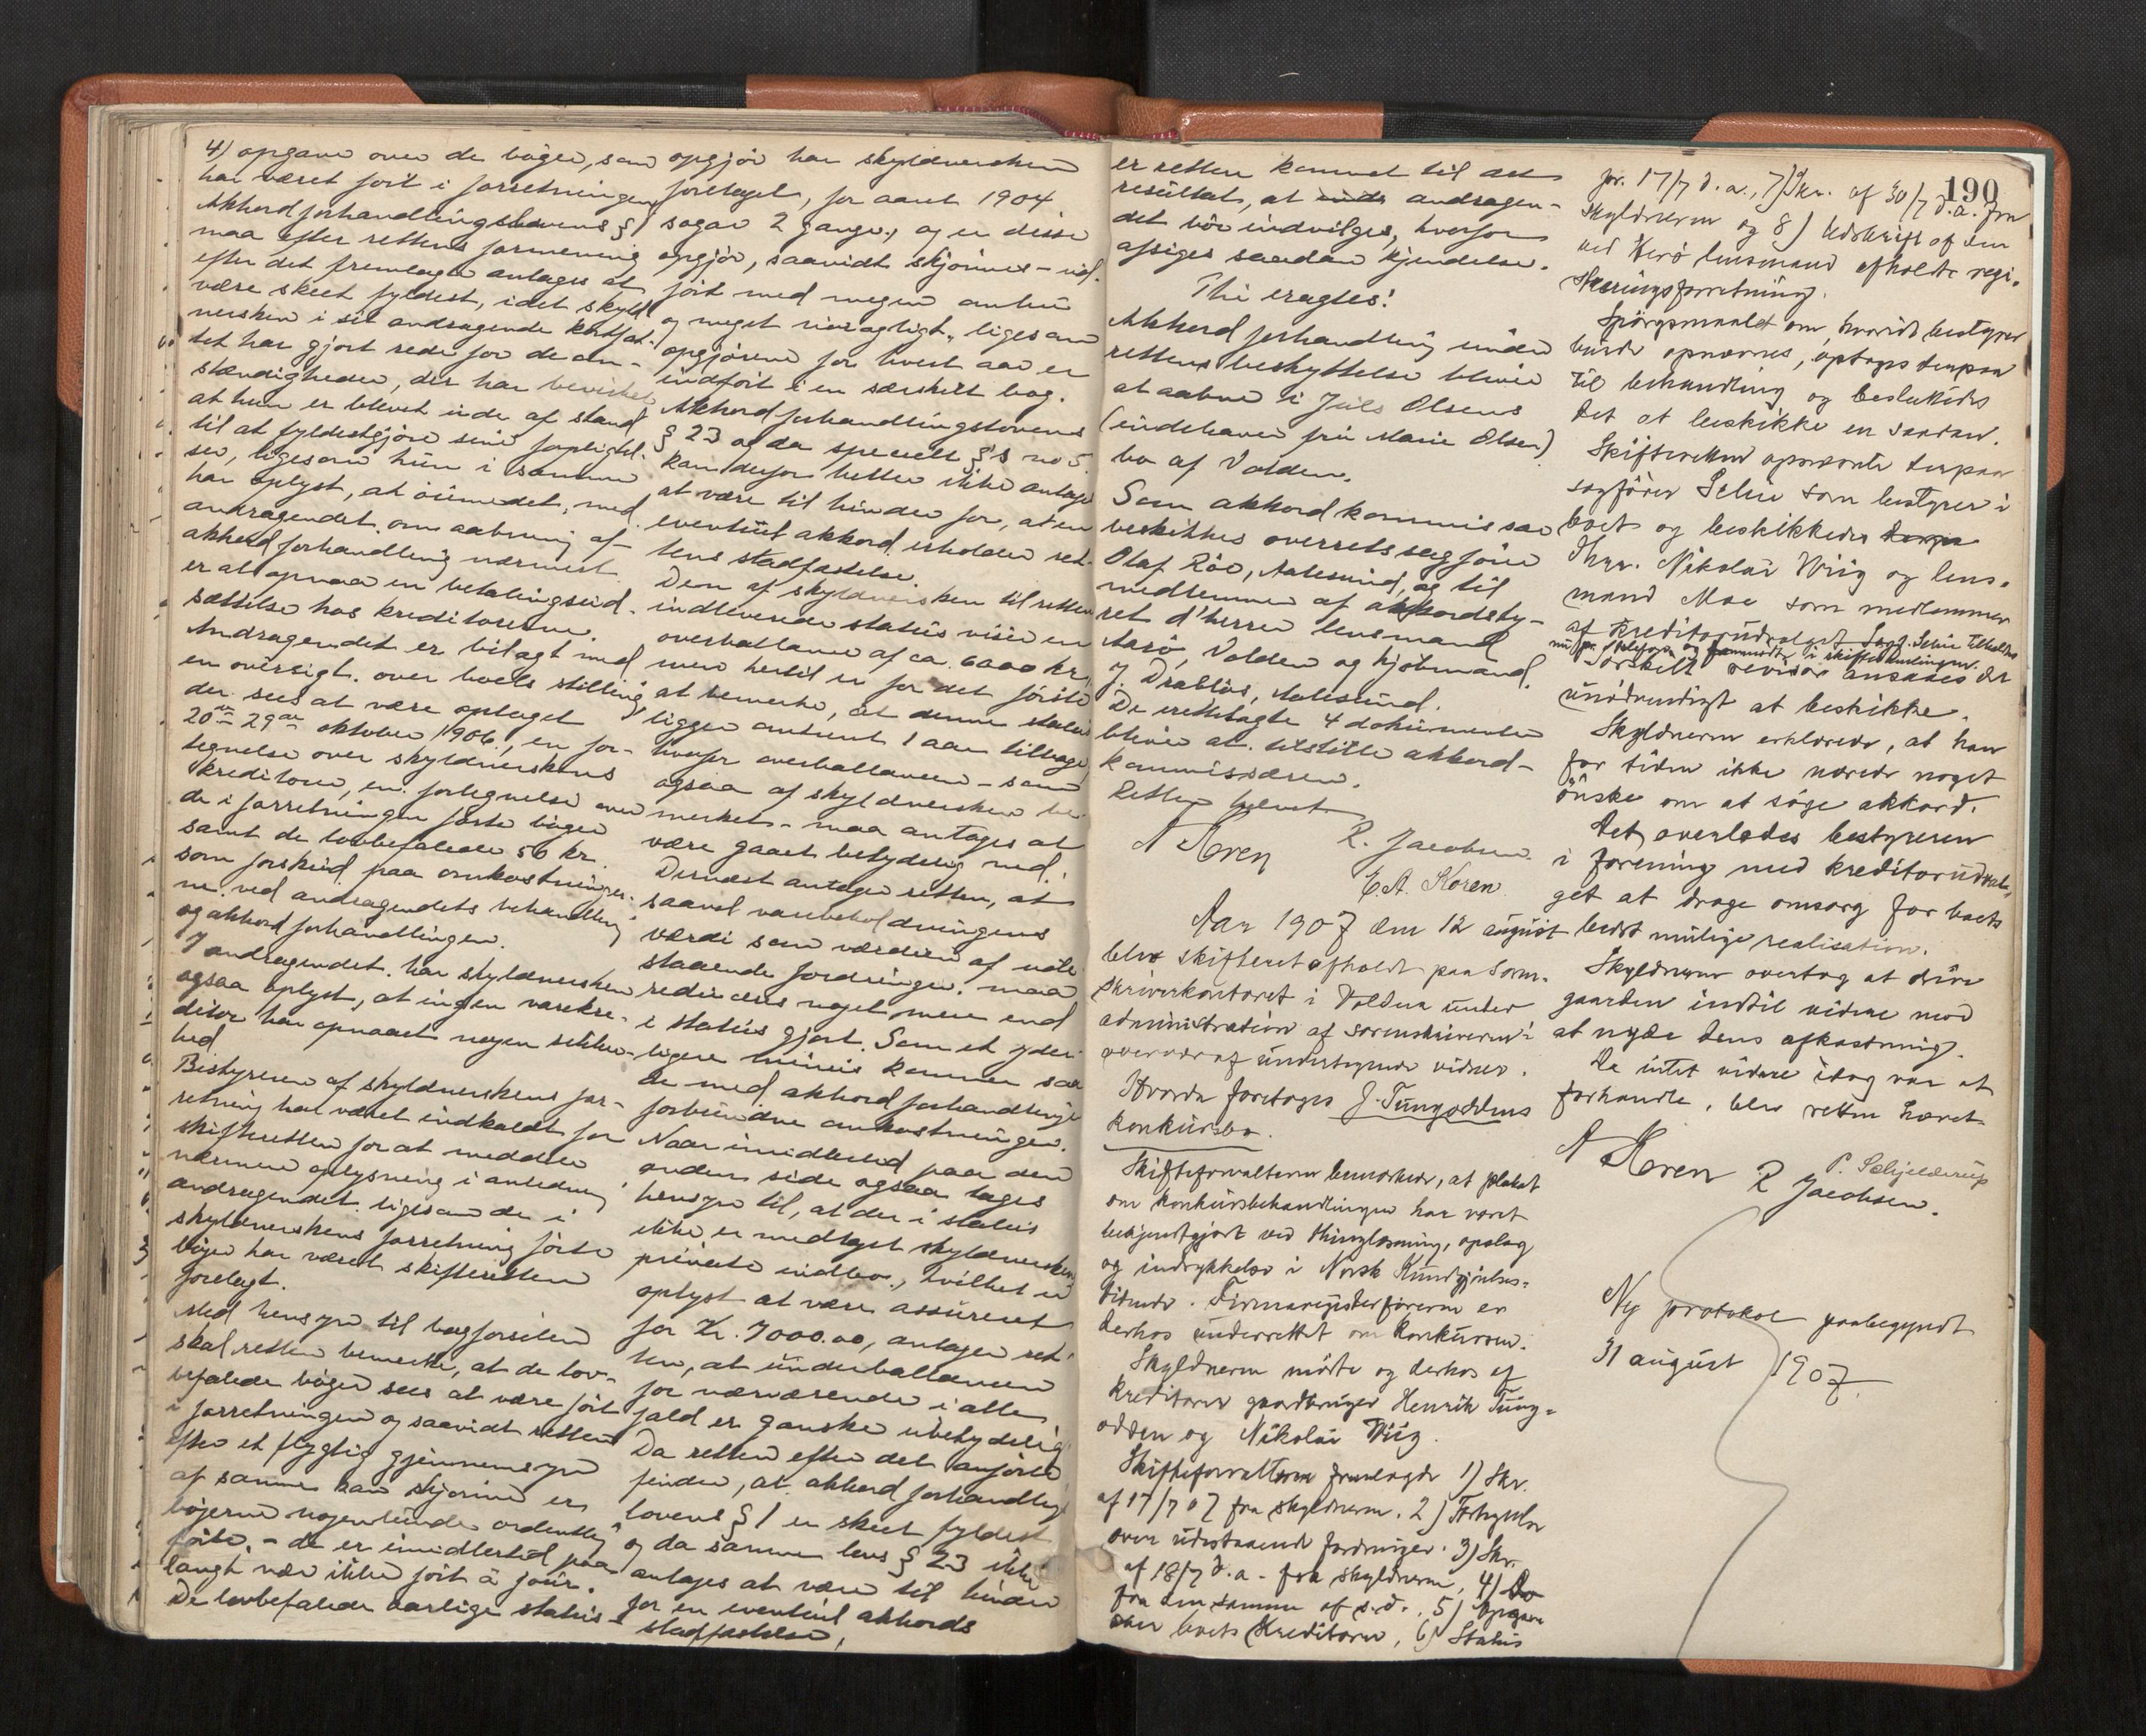 4) opgave over de bøger, som
har været ført i forretningen
Akkordforhandlingslovens § 1
maa efter rettens formening
efter det fremlagte antages at
være skeet fyldest, idet skyld
nersken i sit andragende kortfat-
tet har gjort rede for de om-
stændigheder, der har bevirket
at hun er blevet ude af stand
til at fyldestgjøre sine forpligtel-
ser, ligesom hun i samme
har oplyst, at øiemedet med
andragendet om aabning af
akkordforhandling nærmest
er at opnaa en betalingsud-
sættelse hos kreditorerne.
Andragendet er bilagt med
en oversigt over boets stilling
der sees at være optaget
20de 29de oktober 1906, en for-
tegnelse over skyldnerskens
kreditorer, en fortegnelse over
de i forretningen førte bøger
samt de lovbefalede 50 kr.
som forskud paa omkostninger-
ne ved andragendets behandling
og akkordforhandlingen.
I andragendet har skyldnersken
ogsaa oplyst, at ingen varekre-
ditor har opnaaet nogen sikker-
hed
Bestyreren af skyldnerskens for-
retning har været indkaldt for
skifteretten for at meddele
nærmere oplysning i anledning
andragendet ligesom de i
skyldnerskens forretning førte
bøger har været skifteretten
forelagt.
Med hensyn til bogførselen
skal retten bemerke, at de lov-
befalede bøger sees at være ført
i forretningen og saavidt retten
efter et flygtig gjennemsyn
af samme kan skjønne er
bøgerne nogenlunde ordentlig
førte, - de er imidlertid paa
langt nær ikke ført á jour.
De lovbefalede aarlige status-
opgjør har skyldnersken
foretaget, for aaret 1904
sogar 2 gange, og er disse
opgjør, saavidt skjønnes - ud-
ført med megen omhu
og meget nøiagtigt, ligesom
opgjørene for hvert aar er
indført i en særskilt bog.
Akkordforhandlingslovens
§ 23 og da specielt §'s no 5
kan derfor heller ikke antages
at være til hinder for, at en
eventuel akkord erholder ret-
tens stadfæstelse.
Den af skyldnersken til retten
indleverede status viser en
overballance af ca. 6000 kr,
men hertil er for det første
at bemerke, at denne status
ligger omtrent 1 aar tilbage,
hvorfor overballancen - som
ogsaa af skyldnersken be-
merket - maa antages at
være gaaet betydelig ned.
Dernæst antager retten, at
saavel varebeholdningens
værdi som værdien af ude-
staaende fordringer maa
reduceres noget mere end
i status gjort. Som et yder-
ligere minus kommer saa
de med akkordforhandlinge
forbundne omkostninger.
Naar imidlertid paa den
anden side ogsaa tages
hensyn til, at der i status
ikke er medtaget skyldnerskens
private indbo, hvilket er
oplyst at være assureret
for Kr. 7000.00, antager ret-
ten, at underballancen
for nærværende i alle
fald er ganske ubetydelig.
Da retten efter det anførte
finder, at akkordforhandlings
lovens § 1 er skeet fyldest
og da samme lovs § 23 ikke
antages at være til hinder
for en eventuel akkords
stadfæstelse,
er retten kommet til det
resultat, at andragen-
det bør indvilges, hvorfor
afsiges saadan kjendelse.
Thi eragtes:
Akkordforhandling under
rettens beskyttelse bliver
at aabne i Juls Olsens
(indehaver fru Marie Olsen)
bo af Volden.
Som akkordkommissær
beskikkes overretssagfører
Olaf Røe, Aalesund, og til
medlemmer af akkordsty-
ret d'herrer lensmand
Aarø, Volden og kjøbmand
J. Drabløs, Aalesund.
De erettelagte 4 dokumenter
bliver at tilstille akkord-
kommissæren.
Retten hævet
A Koren
R. Jacobsen.
E.A. Koren.
Aar 1907 den 12 august
blev skifteret afholdt paa Soren-
skriverkontoret i Volden under
administration af sorenskriveren i
overvær af undertegnede vidner.
Hvorda foretoges J. Tungoddens
konkursbo.
Skifteforvalteren bemærkede, at plakat
om konkursbehandlingen har været
bekjendtgjort ved thinglæsning, opslag
og indrykkelse i Norsk Kundgjørelses-
tidende. Firmaregisterføreren er
derhos underrettet om konkursen.
Skyldneren mødte og derhos af
kreditorer gaardbruger Henrik Tung-
odden og Nikolai Wiig.
Skifteforvalteren fremlagde 1) Skr.
af 17/7 07 fra skyldneren. 2) Fortegnelse
over udestaaende fordringer. 3) Skr.
af 18/7 d.a. fra skyldneren, 4) Do
fra den samme af s.d., 5) Opgave
over boets kreditorer, 6) Status
190
pr. 17/7 d.a., 7) Skr. af 30/7 d.a. fra
skyldneren og 8) Udskrift af den
ved Herø lensmand afholdte regi-
streringsforretning.
Spørgsmaalet om, hvorvidt bestyrer
burde opnævnes, optoges derpaa
til behandling og besluttedes
det at beskikke en saadan.
Skifteretten opnævnte derpaa
sagfører Schie som bestyrer i
boet og beskikkedes
Nikolai Wiig og lens-
mand Moe som medlemmer
af kreditorudvalget. Sagf. Schie tilkaldtes
pr. telefon og i skiftesamlingen.
Særskilt revisor ansaaes det
unødvendigt at beskikke.
Skyldneren erklærede, at han
for tiden ikke nærede noget
ønske om at søge akkord.
Det overlodes bestyreren
i forening med kreditorudval-
get at drage omsorg for boets
bedst mulige realisation.
Skyldneren overtog at drive
gaarden indtil videre mod
at nyde dens afkastning.
Da intet videre idag var at
forhandle, blev retten hævet.
A Koren
P. Schjelderup
R Jacobsen.
Ny protokol paabegyndt
31 august 1907.